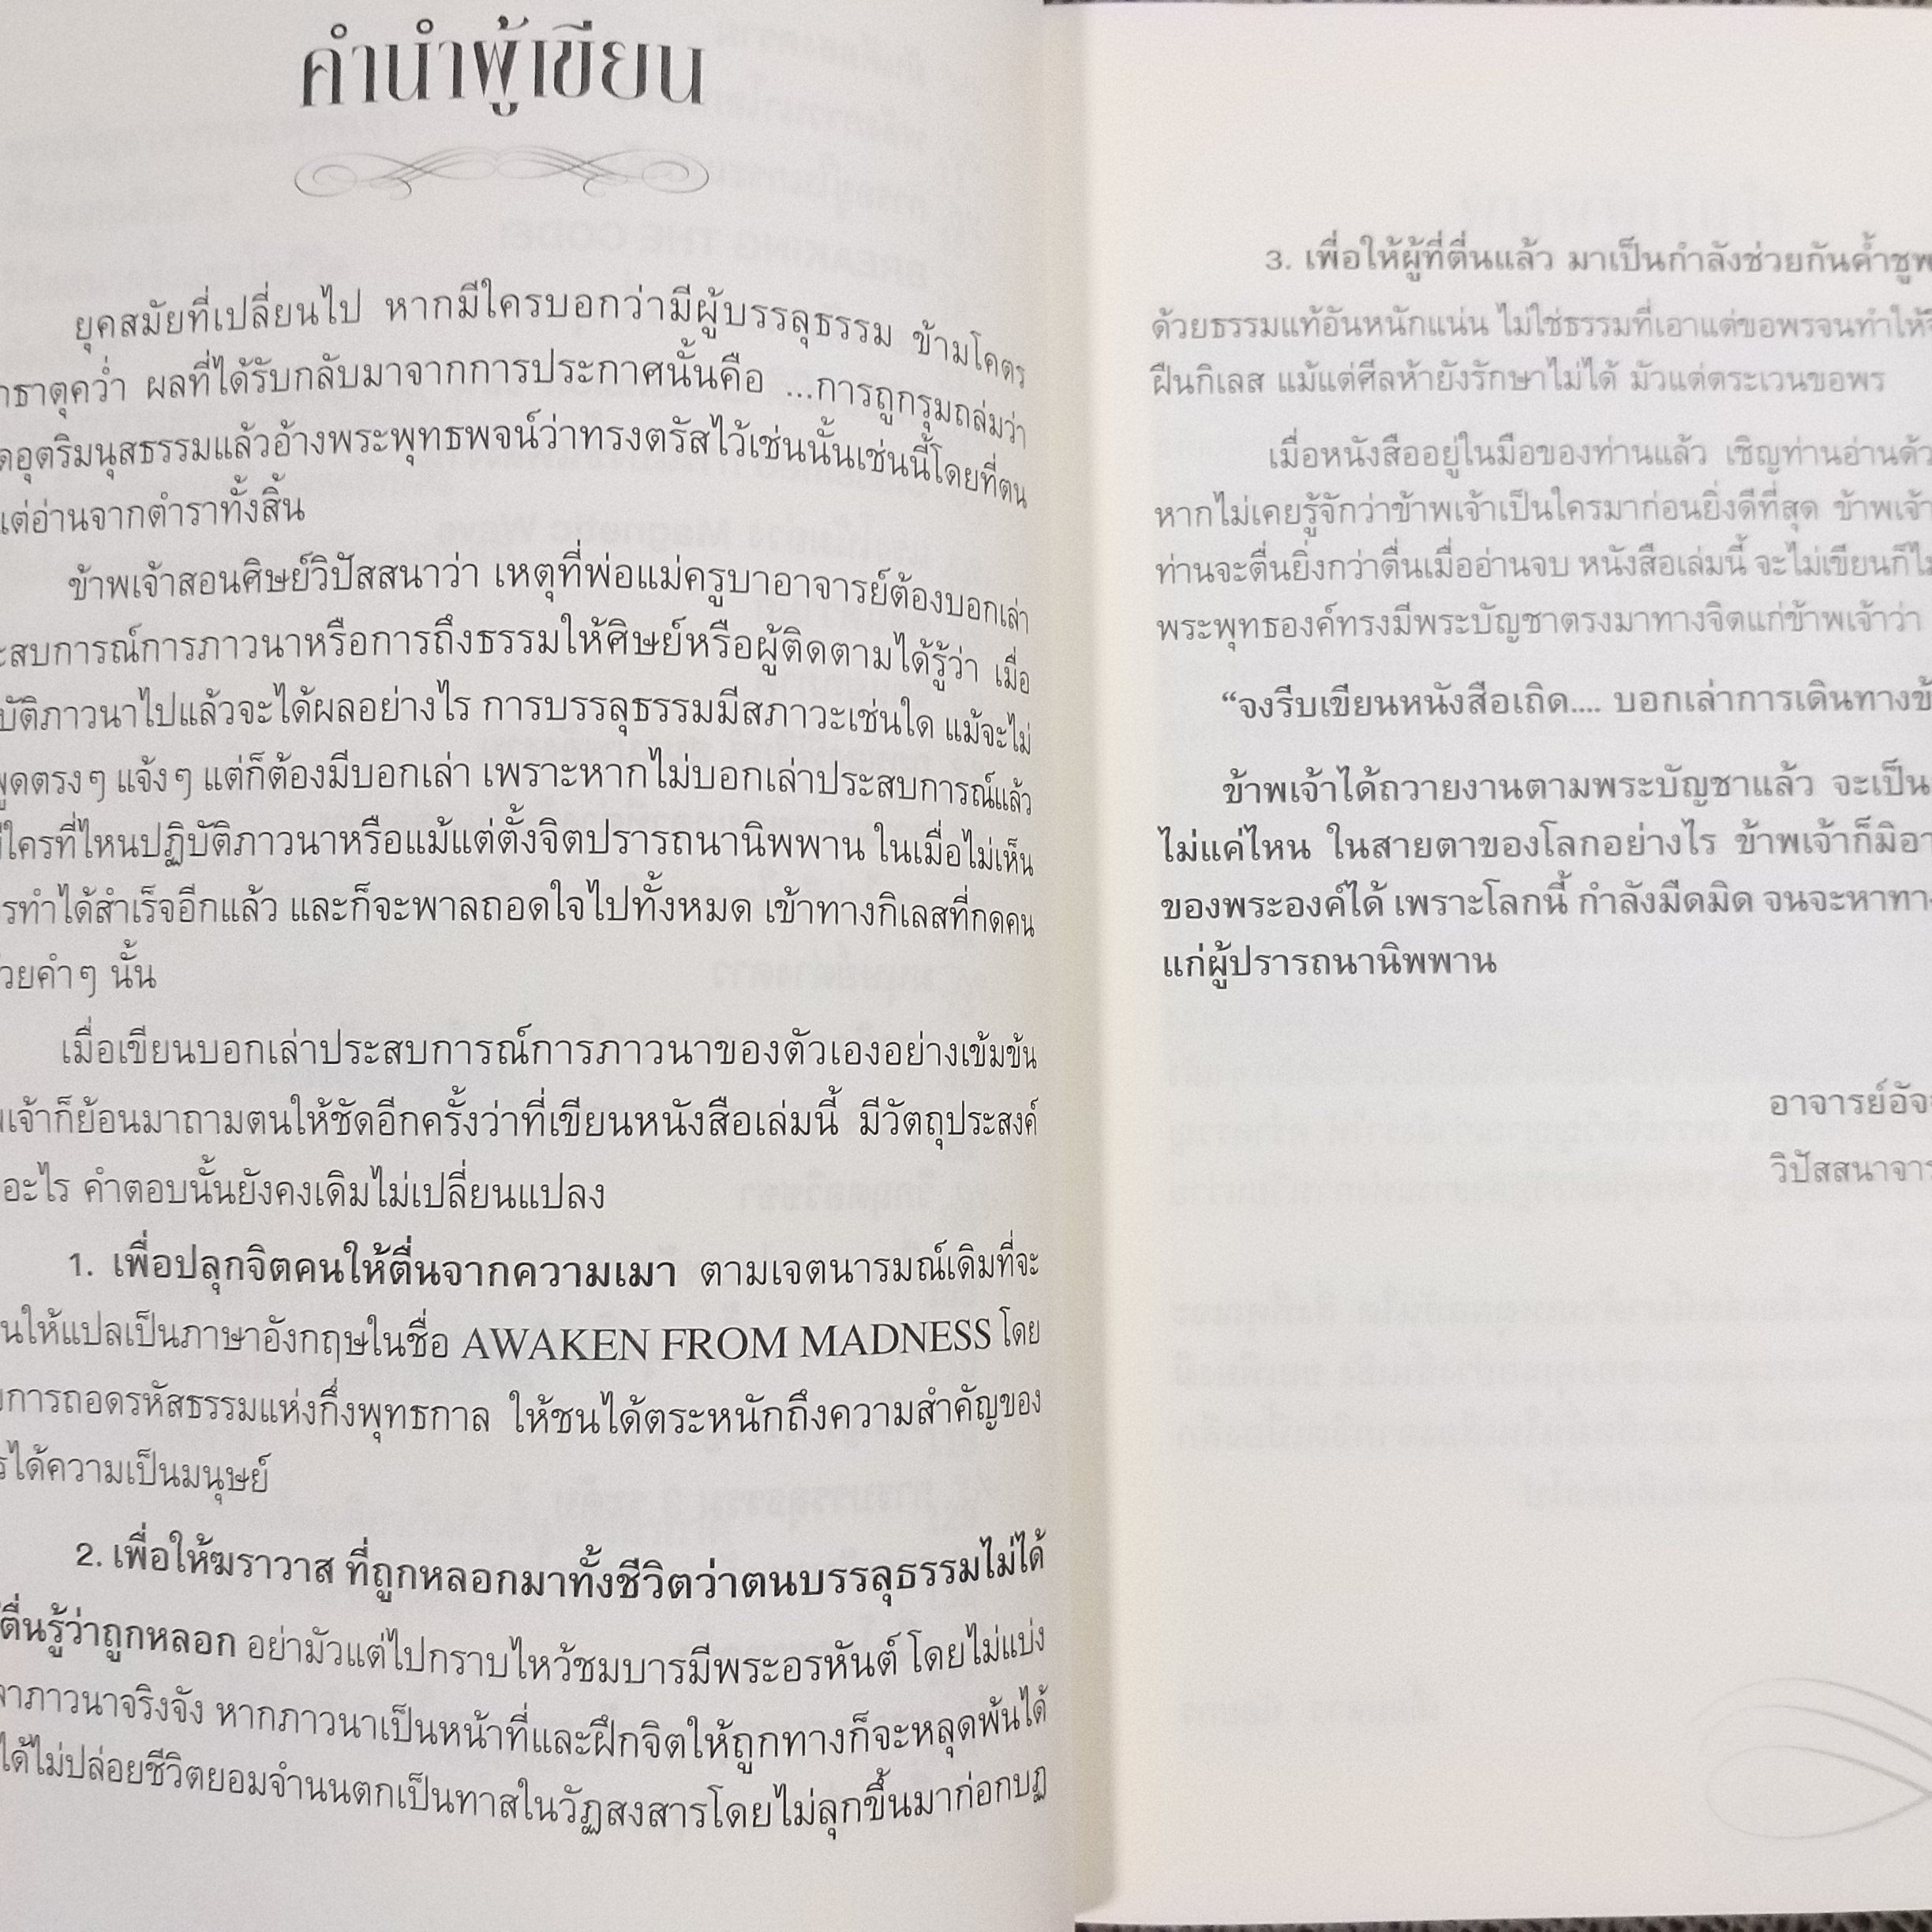 คำนำผู้เขียน
ยุคสมัยที่เปลี่ยนไป หากมีใครบอกว่ามีผู้บรรลุธรรม ข้ามโคตร
าธาตุคว่ำ ผลที่ได้รับกลับมาจากการประกาศนั้นคือ ...การถูกรุมถล่มว่า
ดอุตริมนุสธรรมแล้วอ้างพระพุทธพจน์ว่าทรงตรัสไว้เช่นนั้นเช่นนี้โดยที่ตน
แต่อ่านจากตำราทั้งสิ้น
ข้าพเจ้าสอนศิษย์วิปัสสนาว่า เหตุที่พ่อแม่ครูบาอาจารย์ต้องบอกเล่า
ะสบการณ์การภาวนาหรือการถึงธรรมให้ศิษย์หรือผู้ติดตามได้รู้ว่า เมื่อ
บัติภาวนาไปแล้วจะได้ผลอย่างไร การบรรลุธรรมมีสภาวะเช่นใด แม้จะไม่
พูดตรงๆ แจ้งๆ แต่ก็ต้องมีบอกเล่า เพราะหากไม่บอกเล่าประสบการณ์แล้ว
ใครที่ไหนปฏิบัติภาวนาหรือแม้แต่ตั้งจิตปรารถนานิพพาน ในเมื่อไม่เห็น
รทำได้สำเร็จอีกแล้ว และก็จะพาลถอดใจไปทั้งหมด เข้าทางกิเลสที่กดคน
วยคำๆ นั้น
เมื่อเขียนบอกเล่าประสบการณ์การภาวนาของตัวเองอย่างเข้มข้น
เจ้าก็ย้อนมาถามตนให้ชัดอีกครั้งว่าที่เขียนหนังสือเล่มนี้ มีวัตถุประสงค์
อะไร คำตอบนั้นยังคงเดิมไม่เปลี่ยนแปลง
1. เพื่อปลุกจิตคนให้ตื่นจากความเมา ตามเจตนารมณ์เดิมที่จะ
นให้แปลเป็นภาษาอังกฤษในชื่อ AWAKEN FROM MADNESS โดย
การถอดรหัสธรรมแห่งกึ่งพุทธกาล ให้ชนได้ตระหนักถึงความสำคัญของ
รได้ความเป็นมนุษย์
2. เพื่อให้ฆราวาส ที่ถูกหลอกมาทั้งชีวิตว่าตนบรรลุธรรมไม่ได้
ตื่นรู้ว่าถูกหลอก อย่ามัวแต่ไปกราบไหว้ชมบารมีพระอรหันต์ โดยไม่แบ่ง
าภาวนาจริงจัง หากภาวนาเป็นหน้าที่และฝึกจิตให้ถูกทางก็จะหลุดพ้นได้
ได้ไม่ปล่อยชีวิตยอมจำนนตกเป็นทาสในวัฏสงสารโดยไม่ลุกขึ้นมาก่อกบฏ
3. เพื่อให้ผู้ที่ตื่นแล้ว มาเป็นกำลังช่วยกันค้ำชูพ
ด้วยธรรมแท้อันหนักแน่น ไม่ใช่ธรรมที่เอาแต่ขอพรจนทำให้จิ
ฝืนกิเลส แม้แต่ศีลห้ายังรักษาไม่ได้ มัวแต่ตระเวนขอพร
เมื่อหนังสืออยู่ในมือของท่านแล้ว เชิญท่านอ่านด้ว
หากไม่เคยรู้จักว่าข้าพเจ้าเป็นใครมาก่อนยิ่งดีที่สุด ข้าพเจ้า
ท่านจะตื่นยิ่งกว่าตื่นเมื่ออ่านจบ หนังสือเล่มนี้ จะไม่เขียนก็ไม่
พระพุทธองค์ทรงมีพระบัญชาตรงมาทางจิตแก่ข้าพเจ้าว่า
“จงรีบเขียนหนังสือเถิด.... บอกเล่าการเดินทางข้
ข้าพเจ้าได้ถวายงานตามพระบัญชาแล้ว จะเป็น
ไม่แค่ไหน ในสายตาของโลกอย่างไร ข้าพเจ้าก็มิอา
ของพระองค์ได้ เพราะโลกนี้ กำลังมืดมิด จนจะหาทาง
แก่ผู้ปรารถนานิพพาน
อาจารย์อัจ
วิปัสสนาจาร